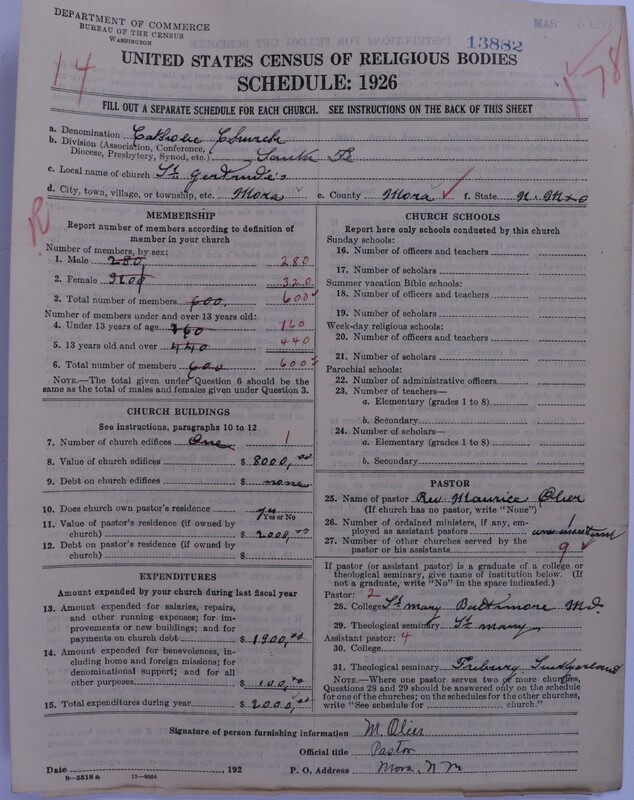 DEPARTMENT OF COMMERCE
BUREAU OF THE CENSUS
WASHINGTON
MAR
13882
14
178
UNITED STATES CENSUS OF RELIGIOUS BODIES
SCHEDULE: 1926
FILL OUT A SEPARATE SCHEDULE FOR EACH CHURCH. SEE INSTRUCTIONS ON THE BACK OF THIS SHEET
a. Denomination Catholic Church
b. Division (Association, Conference, Diocese, Presbytery, Synod, etc.) Santa Fe
c. Local name of church St. Gertrude's
d. City, town, village, or township, etc. Mora e. County Mora ✓ f. State N. Mexo
R
MEMBERSHIP
Report number of members according to definition of
member in your church
Number of members, by sex:
1. Male 280 280
2. Female 320
3. Total number of members 600. 600
Number of members under and over 13 years old:
4. Under 13 years of age 160 160
5. 13 years old and over 440 440
6. Total number of members 600 600
NOTE.—The total given under Question 6 should be the
same as the total of males and females given under Question 3.
CHURCH BUILDINGS
See instructions, paragraphs 10 to 12
7. Number of church edifices One 1
8. Value of church edifices $ 8000,00
9. Debt on church edifices $ none
10. Does church own pastor's residence yes
Yes or No
11. Value of pastor's residence (if owned by
church) $ 2000,00
12. Debt on pastor's residence (if owned by
church) $
EXPENDITURES
Amount expended by your church during last fiscal year
13. Amount expended for salaries, repairs,
and other running expenses; for im-
provements or new buildings; and for
payments on church debt $ 1900,00
14. Amount expended for benevolences,
including home and foreign missions; for
denominational support; and for all
other purposes $ 100,00
15. Total expenditures during year $ 2000,00
CHURCH SCHOOLS
Report here only schools conducted by this church
Sunday schools:
16. Number of officers and teachers
17. Number of scholars
Summer vacation Bible schools:
18. Number of officers and teachers
19. Number of scholars
Week-day religious schools:
20. Number of officers and teachers
21. Number of scholars
Parochial schools:
22. Number of administrative officers
23. Number of teachers—
a. Elementary (grades 1 to 8)
b. Secondary
24. Number of scholars—
a. Elementary (grades 1 to 8)
b. Secondary
PASTOR
25. Name of pastor Rev. Maurice Olier
(If church has no pastor, write "None")
26. Number of ordained ministers, if any, em-
ployed as assistant pastors 1
27. Number of other churches served by the
pastor or his assistants 9 ✓
If pastor (or assistant pastor) is a graduate of a college or
theological seminary, give name of institution below. (If
not a graduate, write "No" in the space indicated.)
Pastor: 2
28. College St Mary Baltimore Md.
29. Theological seminary St Mary
Assistant pastor: 4
30. College
31. Theological seminary Friburg
NOTE.—Where one pastor serves two or more churches,
Questions 28 and 29 should be answered only on the schedule
for one of the churches; on the schedules for the other churches,
write "See schedule for church."
Signature of person furnishing information M. Olier
Official title Pastor
Date , 192 P. O. Address Mora, N M
8-2518a 11-9264